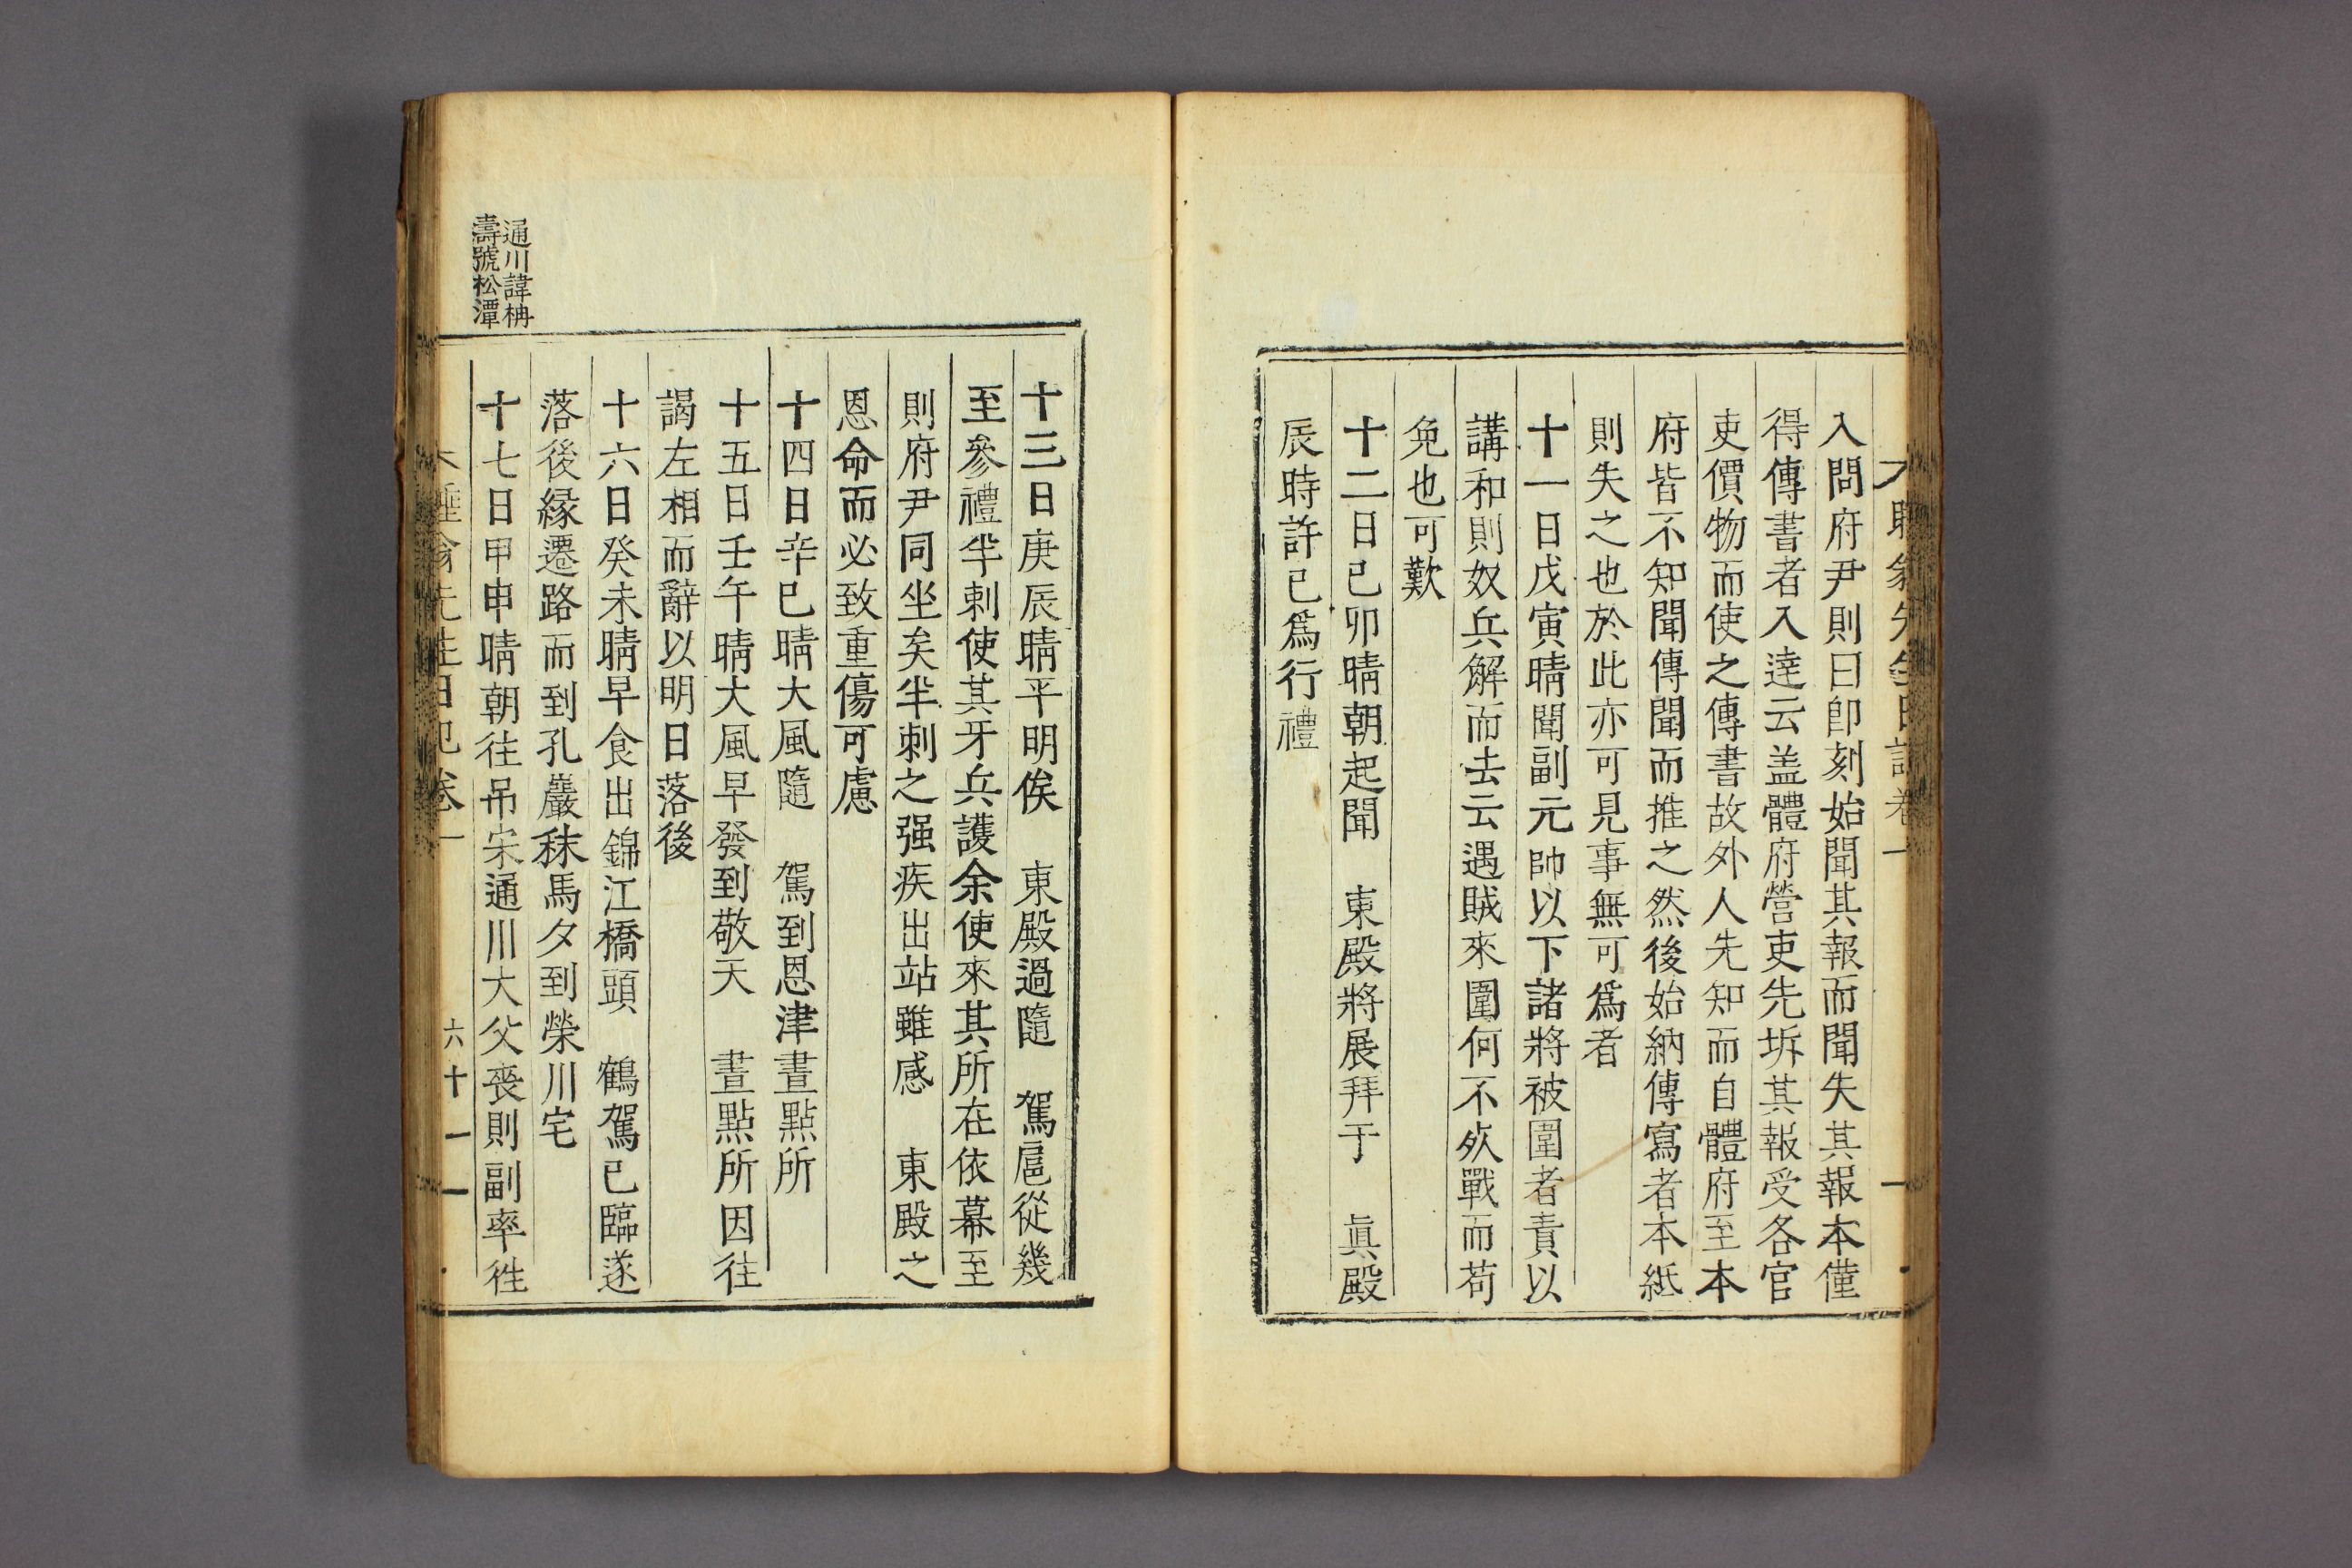 入問府尹則曰卽刻始聞其報而聞失其報本僅
得傳書者入達云盖體府營吏先坼其報受各官
吏價物而使之傳書故外人先知而自體府至本
府皆不知聞傳聞而推之然後始納傳寫者本紙
則失之也於此亦可見事無可爲者
十一日戊寅晴聞副元帥以下諸將被圍者責以
講和則奴兵解而去云遇賊來圍何不死戰而苟
免也可歎
十二日己卯晴朝起聞 東殿將展拜于 眞殿
辰時許已爲行禮
通川諱柟
壽號松潭
十三日庚辰晴平明俟 東殿過隨 駕扈從幾
至參禮半刺使其牙兵護余使來其所在依幕至
則府尹同坐矣半刺之强疾出站雖感 東殿之
恩命而必致重傷可慮
十四日辛巳晴大風隨 駕到恩津晝點所
十五日壬午晴大風早發到敬天 晝點所因往
謁左相而辭以明日落後
十六日癸未晴早食出錦江橋頭 鶴駕已臨遂
落後緣遷路而到孔巖秣馬夕到榮川宅
十七日甲申晴朝往吊宋通川大父喪則副率徃
先生日記卷一 六十一